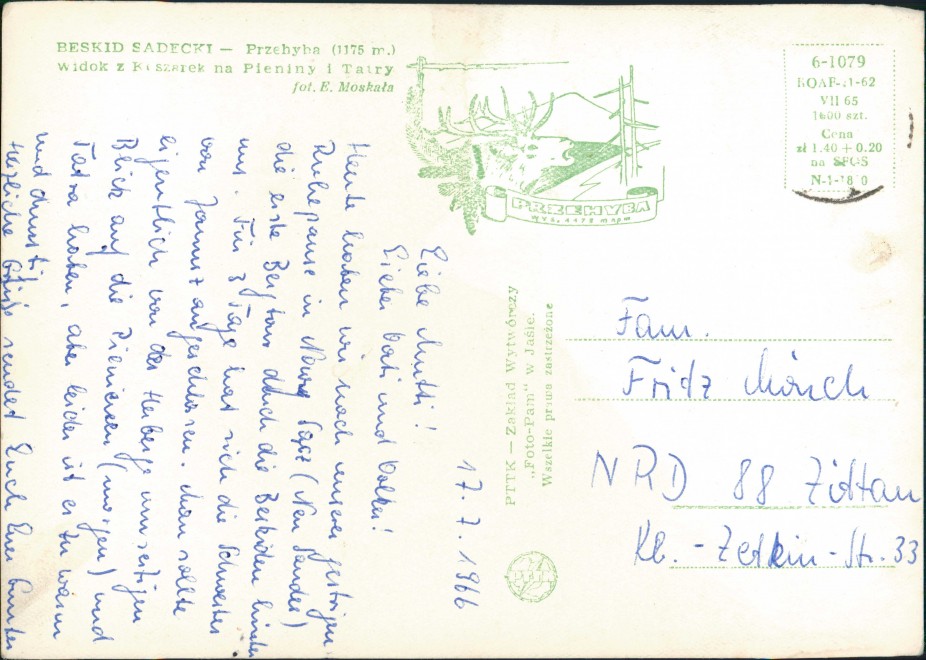 BESKID SĄDECKI — Przehyba (1175 m.)
Widok z Kuszarek na Pieniny i Tatry
fot. E. Moskała
PRZEHYBA
WYS. 1175 m npm
6-1079
VII 65
1600 szt.
Cena
zł 1.40 + 0.20
na SFOS
PTTK — Zakład Wytwórczy
„Foto-Pam" w Jaśle.
Wszelkie prawa zastrzeżone
17. 7. 1966
Liebe Mutti!
Lieber Vati und Volker!
Heute haben wir nach unserer gestrigen
Ruhepause in Nowy Sącz (Neu Sandez)
die erste Bergtour durch die Beskiden hinter
uns. Für 3 Tage hat sich die Schwester
von angeschlossen. Man sollte
eigentlich von der Herberge umseitigen
Blick auf die Pieninen (morgen) und
Tatra haben, aber leider ist es zu warm
und dunstig.
Herzliche Grüße sendet Euch Euer Gunter
Fam.
Fritz Mönch
NRD 88 Zittau
Kl.-Zetkin-Str. 33